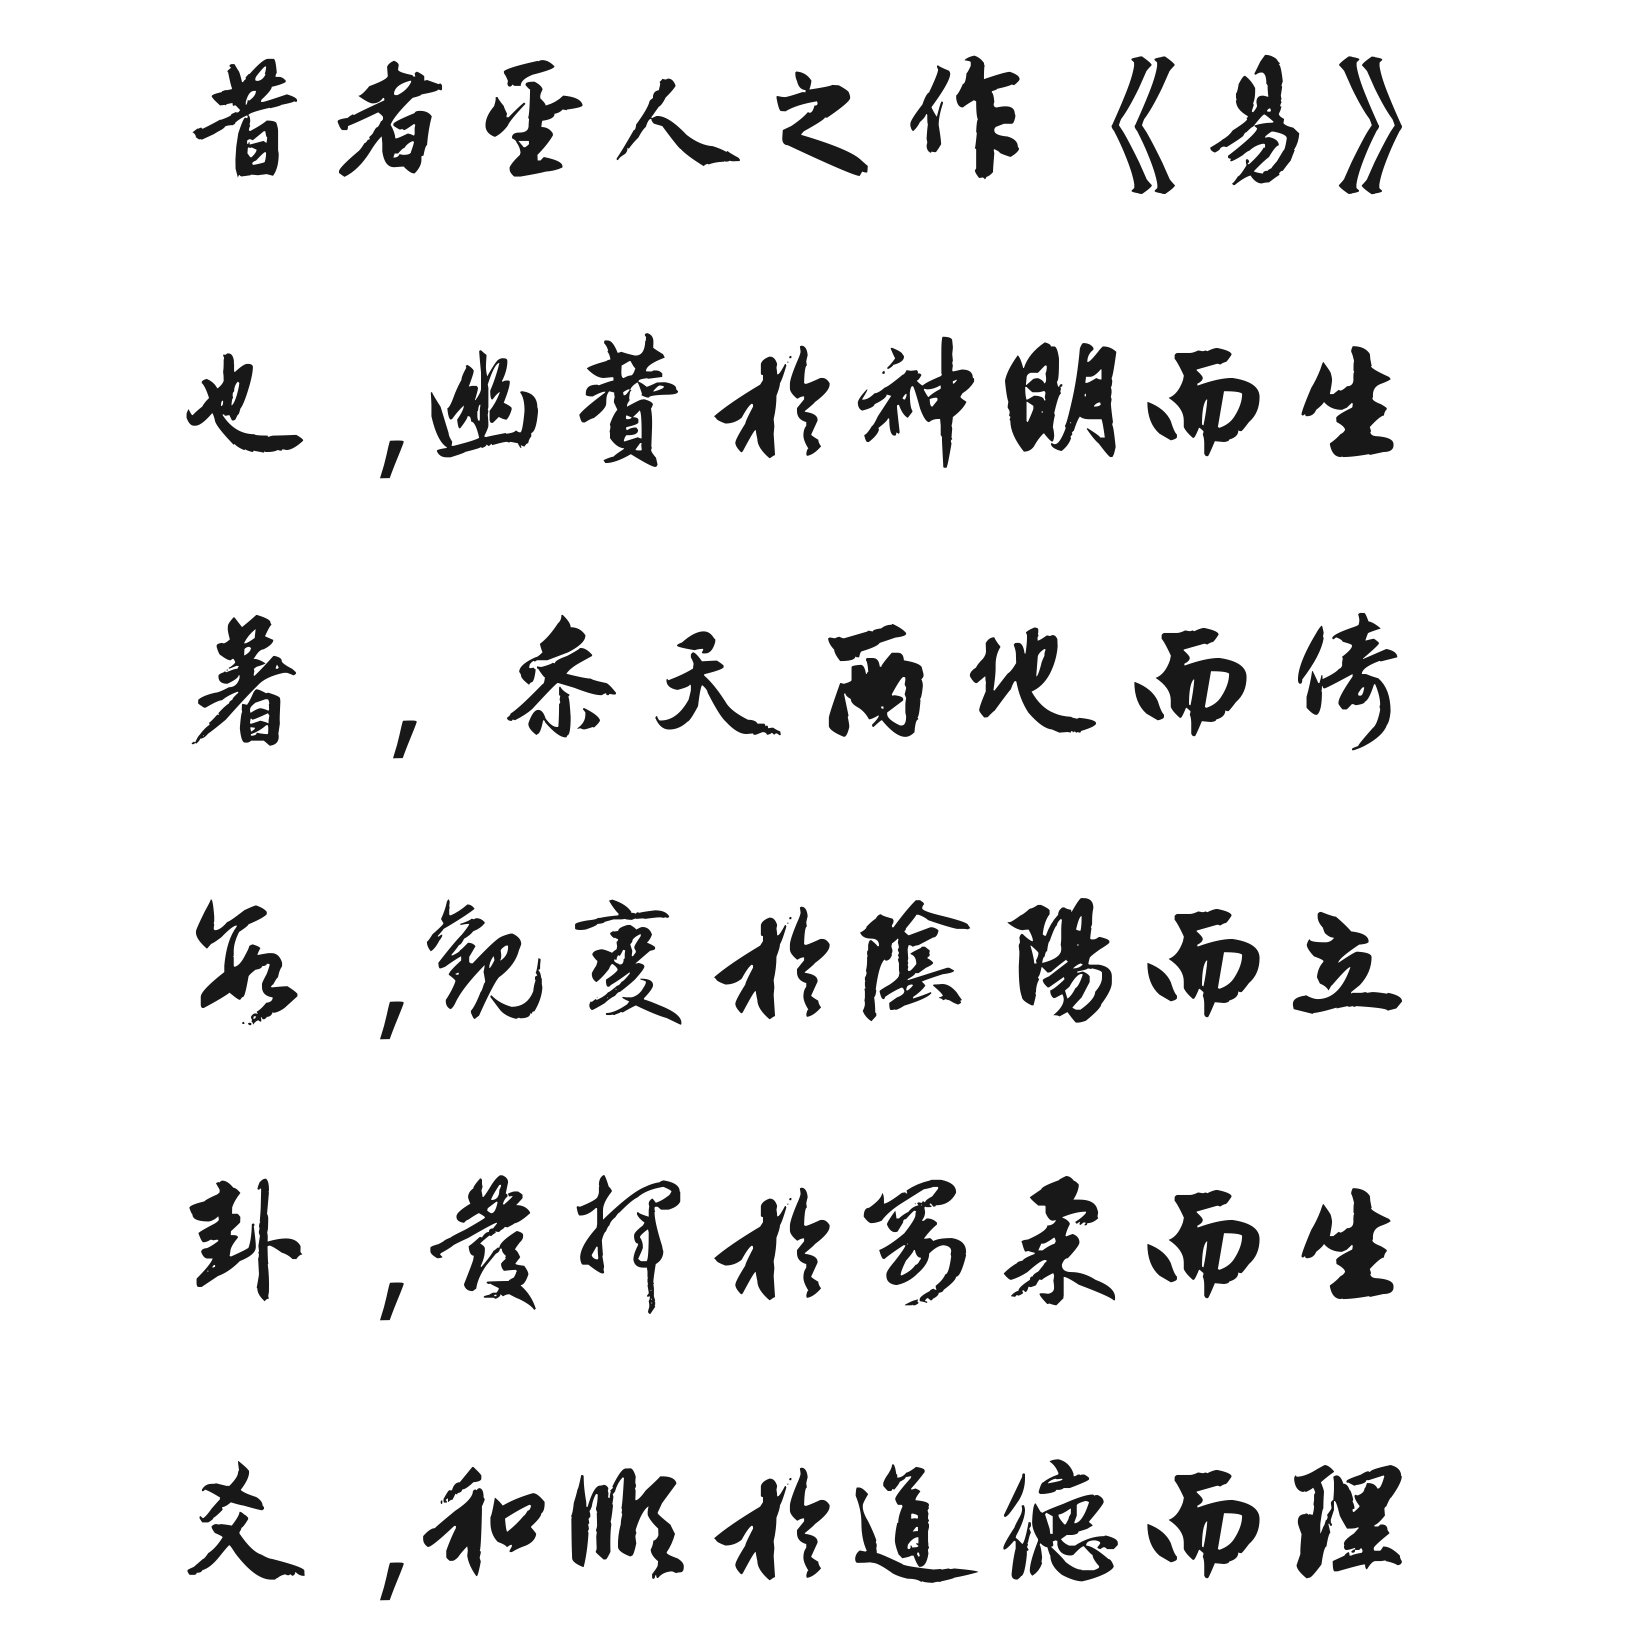 昔者聖人之作《易》
也,幽贊於神明而生
著,叅天兩地而倚
數,觀變於陰陽而立
卦,發揮於剛柔而生
爻,和順於道德而理